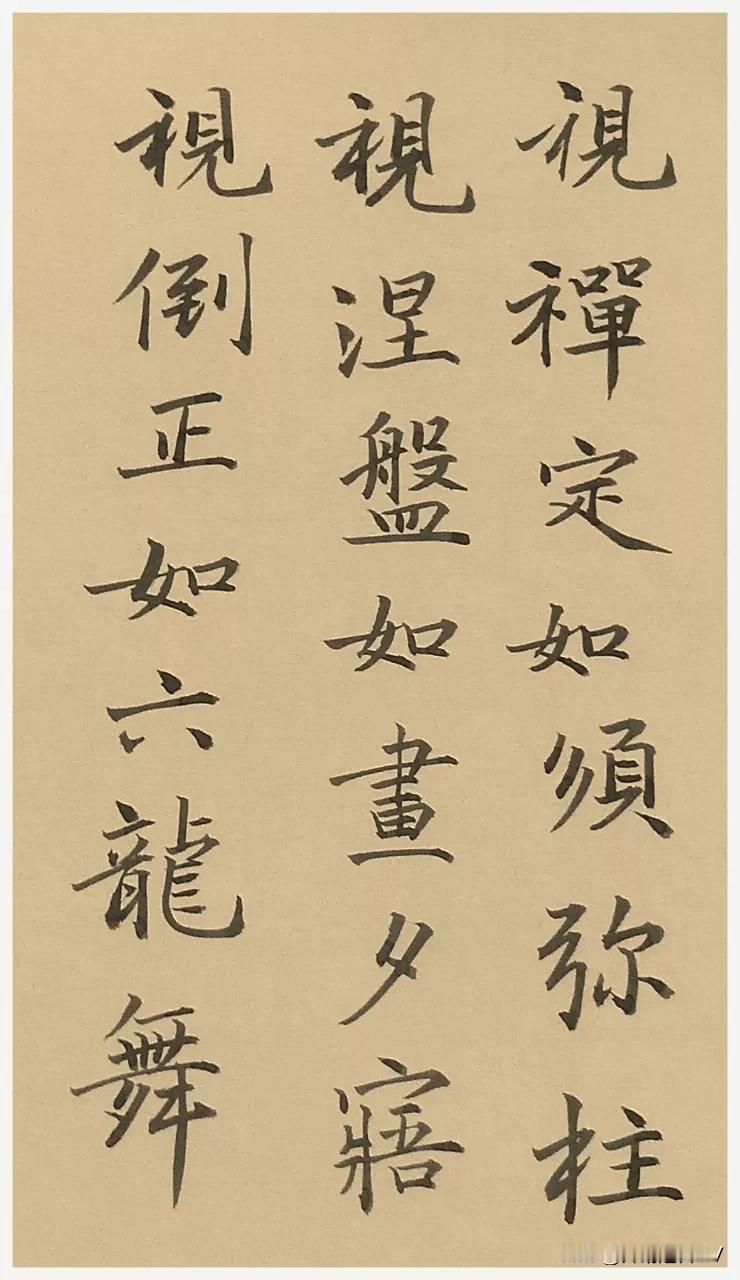 視禪定如須弥柱
視涅盤如晝夕寤
視倒正如六龍舞